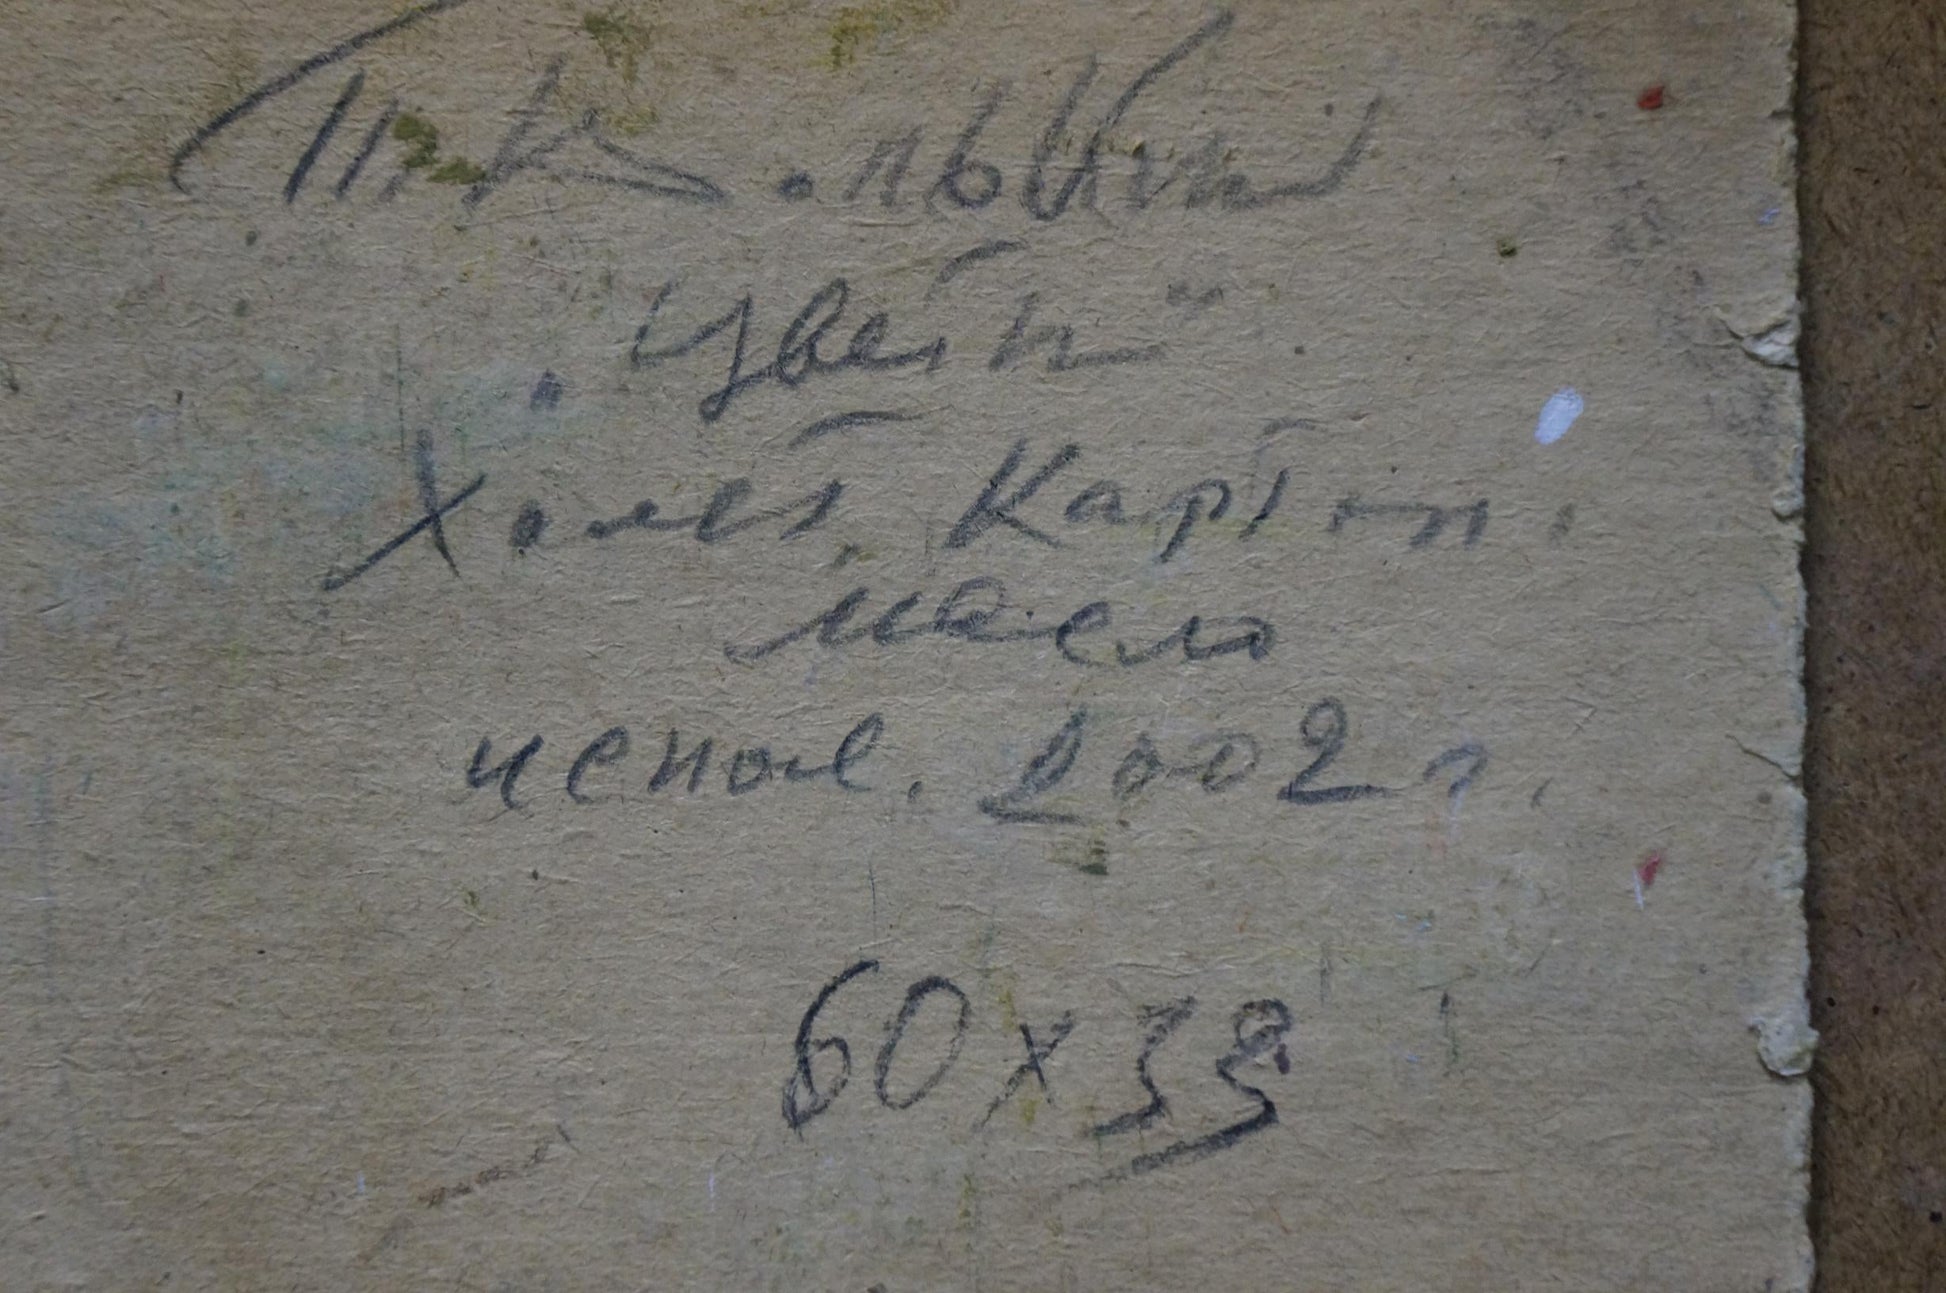 „Цветы"
Холст, Картон.
Масло
испол. 2002 г.
60 х 33